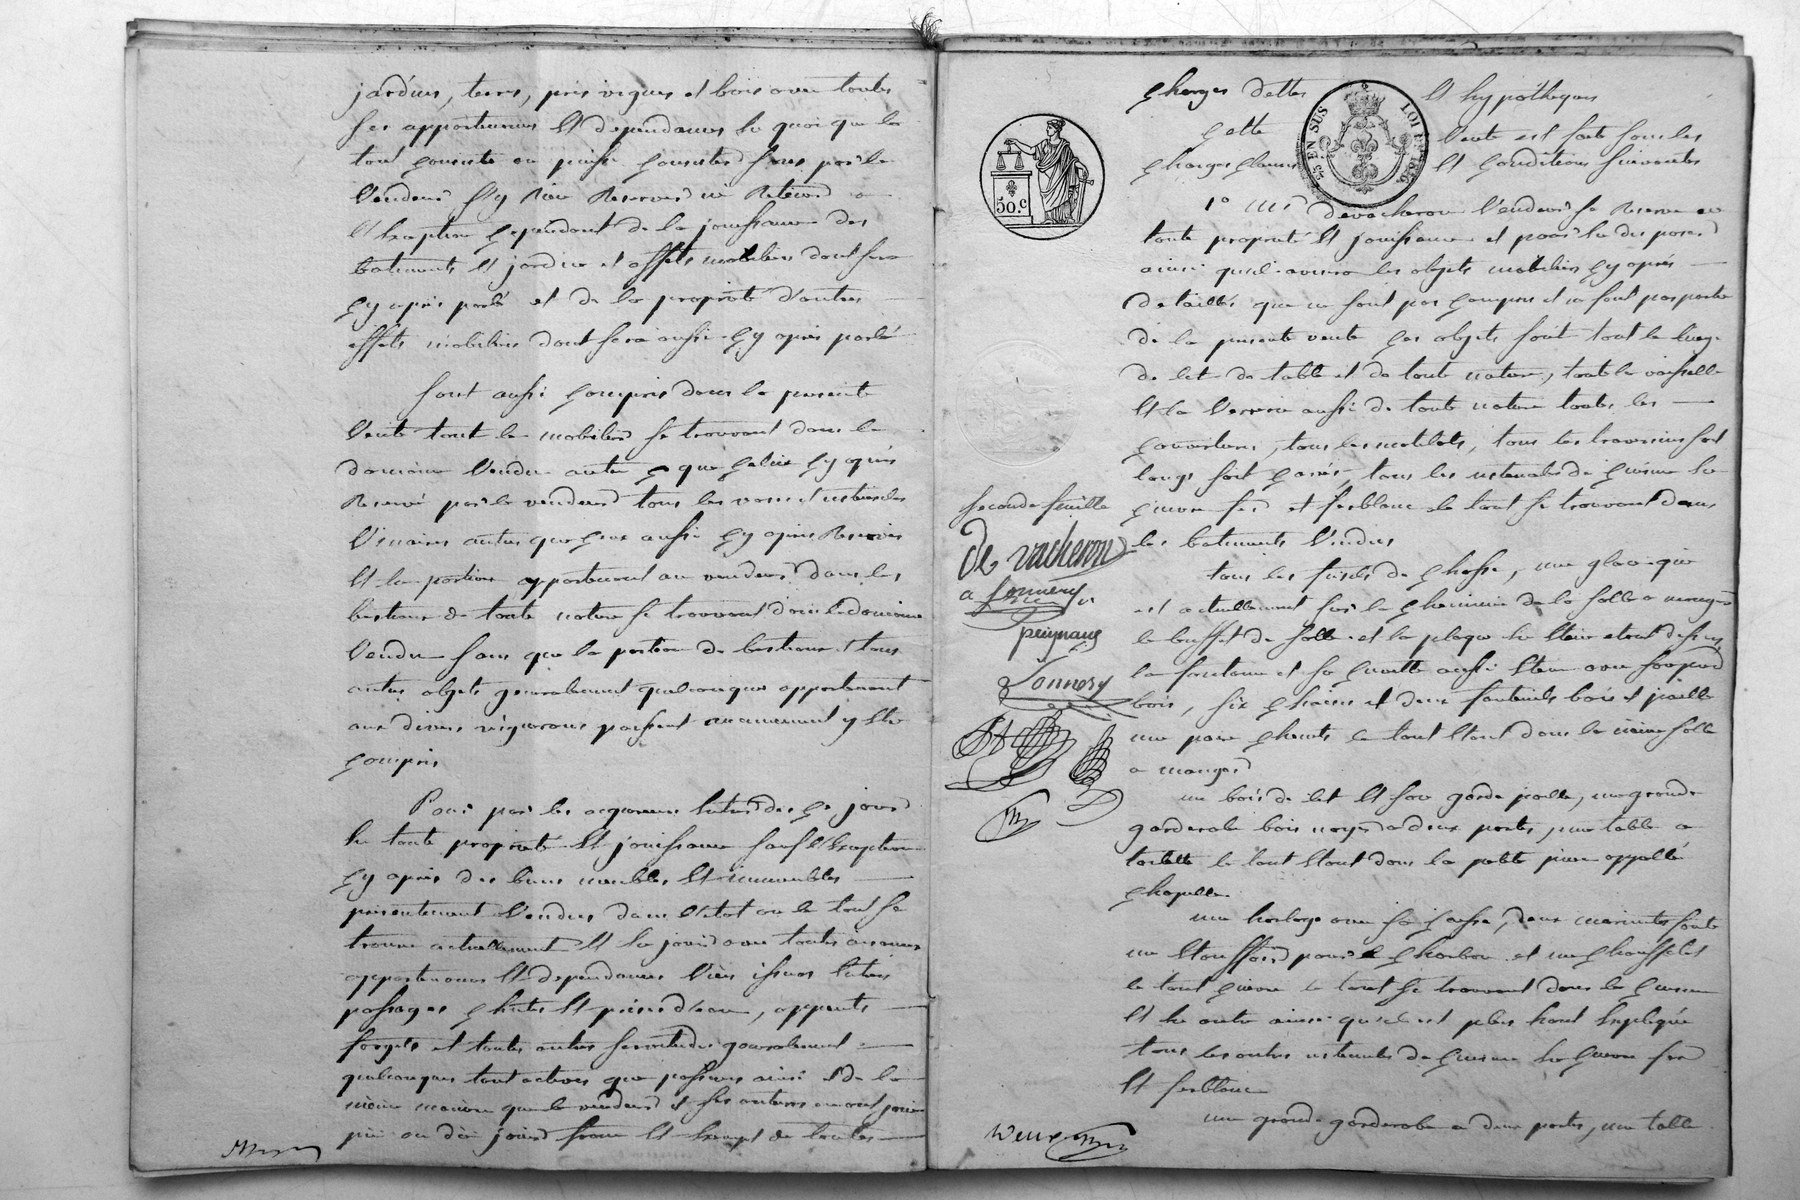 jardins, terres, prés vignes et bois avec toutes
ses appartenances et dependances en quoi que le
tout consiste ou puisse consister sans par le
Vendeur s'y Rien Reserver ni Retenir a
l'Exception cependant de la jouissance des
batiments et jardin et effets mobiliers dont sera
cy après parlé et de la propriété d'autres
effets mobiliers dont sera aussi cy après parlé
Sont aussi compris dans la presente
Vente tout le mobilier se trouvant dans le
domaine Vendu autre que celui cy après
Reservé par le vendeur tous les vases et ustensiles
Vinaires autres que ceux aussi cy après Reservés
Et la portion appartenant au vendeur dans les
bestiaux de toute nature se trouvant dans le domaine
Vendu sans que la portion de bestiaux et tous
autres objets generalement quelconques appartenant
aux divers vignerons puissent aucunement y Etre
compris
Pour par les acquereurs heriter dès ce jour
en toute propriété Et jouissance sauf l'Exception
cy après des biens meubles Et immeubles
presentement Vendus dans l'état ou le tout se
trouve actuellement Et en jouir avec toutes aisances
appartenances Et dependances Vües issues Entrées
passages chutes Et prises d'eau, egouts
forgets et toutes autres servitudes generalement
quelconques tant actives que passives ainsi Et de la
même manière que le vendeur et ses auteurs en ont joui
pû ou dû jouir franc Et Exempt de toutes
charges dettes Et hypothèques
Cette Vente est faite sous les
charges clauses Et conditions suivantes
1° Mr devacheron Vendeur se Reserve en
toute propriété Et jouissance et pour en disposer
ainsi qu'il avisera les objets mobiliers cy après
détaillés que ne sont pas compris et ne font pas partie
de la presente vente ces objets sont tout le linge
de lit de table et de toute nature, toute la vaisselle
Et la Verrerie aussi de toute nature toutes les
couvertures, tous les matelats, tous les traversins soit
longs soit carrés, tous les ustensiles de cuisine en
cuivre fer et ferblanc le tout se trouvant dans
les batiments Vendus
tous les fusils de chasse, une glace qui
est actuellement sur la cheminée de la salle a manger
le buffet de salle et la plaque en Etain étant dessus
la fontaine et sa cuvette aussi Etain avec son pied
bois, six chaises et deux fauteuils bois et paille
une paire chenets le tout Etant dans la même salle
a manger
un bois de lit Et son garde paille, une grande
garderobe bois noyer a deux portes, une table a
toilette le tout Etant dans la petite piece appellée
chapelle
une horloge avec sa caisse, deux marmites fonte
un Etouffoir pour le charbon et un chauffelit
le tout cuivre le tout se trouvant dans la cuisine
Et en outre ainsi qu'il est plus haut Expliqué
tous les autres ustensiles de cuisine en cuivre fer
Et ferblanc
une grande garderobe a deux portes, une table
50.c
25 EN SUS
LOI DE 1816
Seconde feuille
De vacheron
peignaud